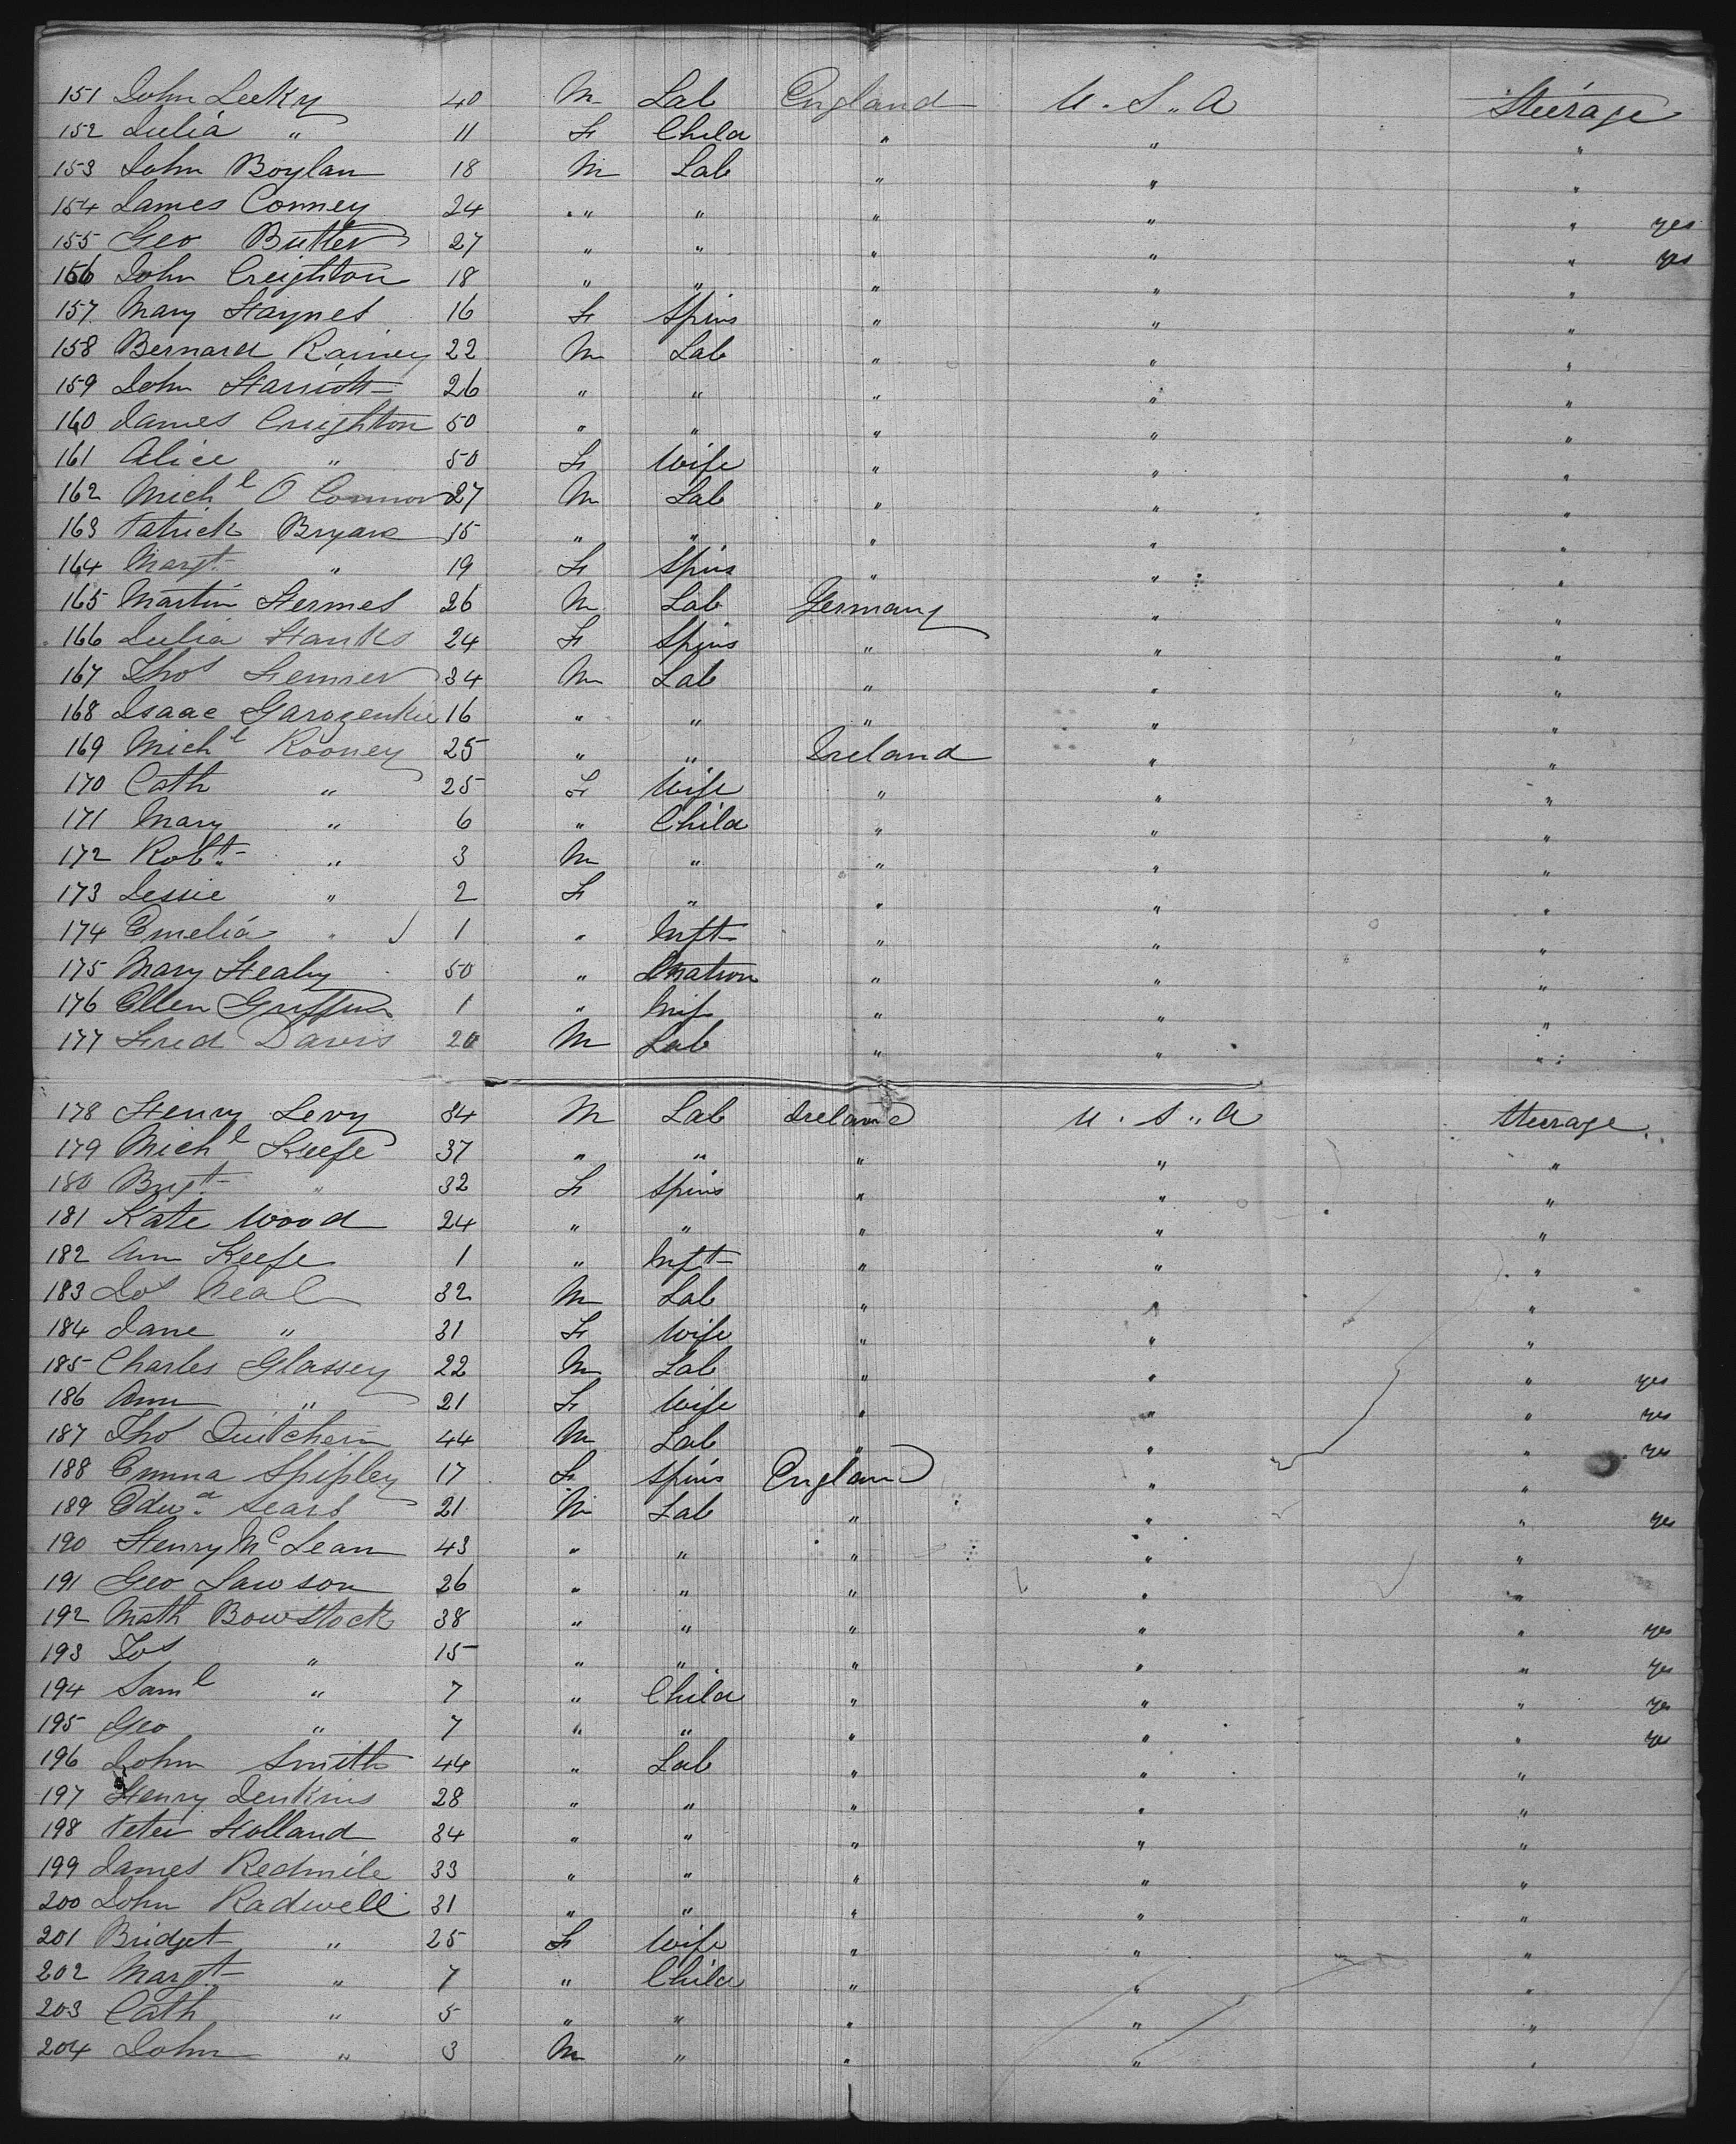 151 John Leeky 40 M Lab England U.S.A Steerage
152 Julia " 11 F Child " " "
153 John Boylan 18 M Lab " " "
154 James Conney 24 " " " " " yes
155 Geo Butler 27 " " " " " yes
156 John Creighton 18 " " " " "
157 Mary Haynes 16 F Spins " " "
158 Bernard Rainey 22 M Lab " " "
159 John Harriott 26 " " " " "
160 James Creighton 50 " " " " "
161 Alice " 50 F Wife " " "
162 Michl O Connor 27 M Lab " " "
163 Patrick Bryan 15 " " " " "
164 Margt " 19 F Spins " " "
165 Martin Hermes 26 M Lab Germany " "
166 Julia Hanks 24 F Spins " " "
167 Thos 34 M Lab " " "
168 Isaac 16 " " " " "
169 Michl Rooney 25 " " Ireland " "
170 Cath " 25 F Wife " " "
171 Mary " 6 " Child " " "
172 Robt " 3 M " " " "
173 Jessie " 2 F " " " "
174 Emelia " 1 " Inft " " "
175 Mary Healy 50 " Matron " " "
176 Ellen Griffin 1 " Inf " " "
177 Fred Davis 20 M Lab " " "
178 Henry Levy 34 M Lab Ireland U.S.A Steerage
179 Michl Keefe 37 " " " " "
180 Brigt " 32 F Spins " " "
181 Kate Wood 24 " " " " "
182 Ann Keefe 1 " Inft " " "
183 Jos Neal 32 M Lab " " "
184 Jane " 31 F Wife " " "
185 Charles Glassey 22 M Lab " " " yes
186 Ann " 21 F Wife " " " yes
187 Tho 44 M Lab " " " yes
188 Emma Shipley 17 F Spins England " "
189 Edwd Sears 21 M Lab " " " yes
190 Henry Mc Lean 43 " " " " "
191 Geo Lawson 26 " " " " "
192 Math Bowstock 38 " " " " " yes
193 Jos " 15 " " " " " yes
194 Saml " 7 " Child " " " yes
195 Geo " 7 " " " " " yes
196 John Smith 44 " Lab " " "
197 Henry Jenkins 28 " " " " "
198 Peter Holland 34 " " " " "
199 James Redmile 33 " " " " "
200 John Radwell 31 " " " " "
201 Bridget " 25 F Wife " " "
202 Margt " 7 " Child " " "
203 Cath " 5 " " " " "
204 John " 3 M " " " "